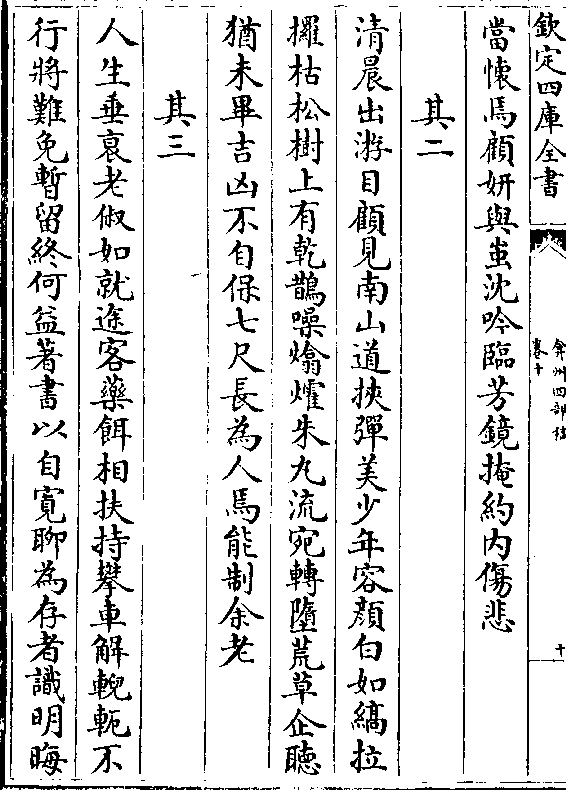 欽定四庫全書
弇州四部稿
卷十
十
當懷焉顧妍與蚩沈吟臨芳鏡掩約内傷悲
其二
清晨出游目顧見南山道挾彈美少年容顔白如縞拉
攞枯松樹上有乾鵲噪熻爚朱丸流宛轉墮荒草企聽
猶未畢吉凶不自保七尺長為人焉能制余老
其三
人生垂衰老俶如就途客藥餌相扶持攀車解輗軛不
行將難免暫留終何益著書以自寛聊為存者識明晦